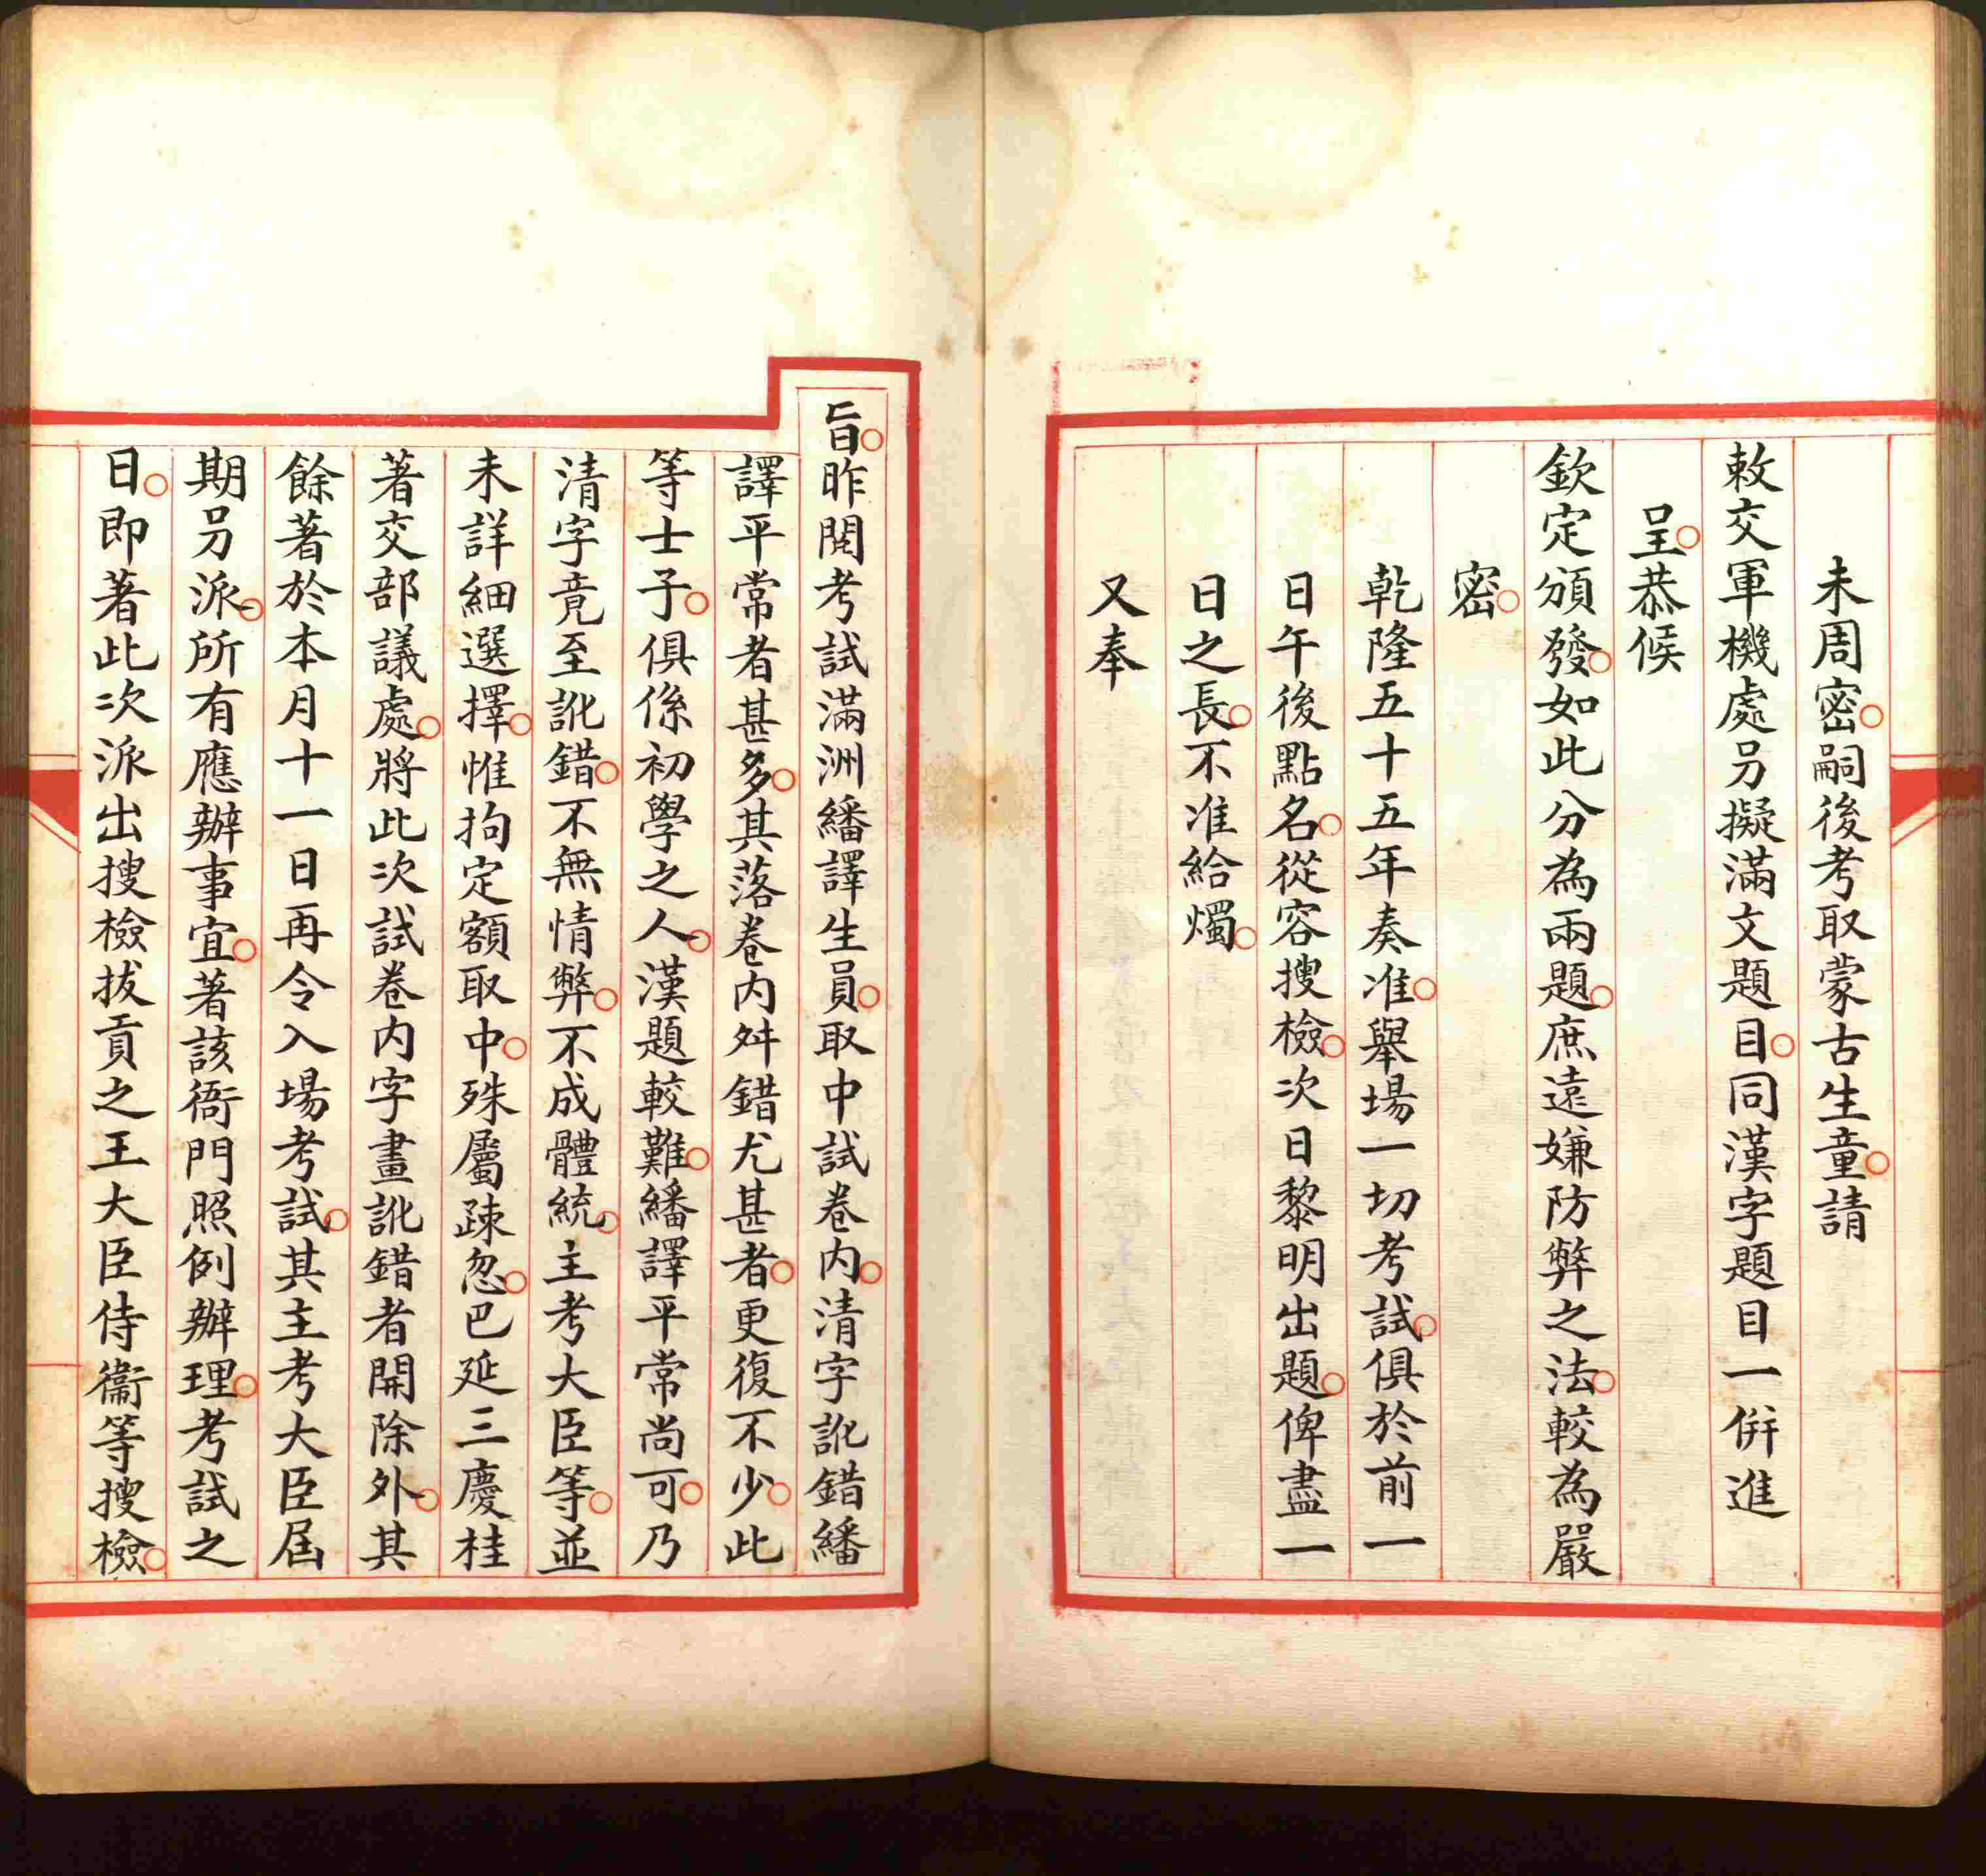 未周密嗣後考取蒙古生童請
敕交軍機處另擬滿文題目同漢字題目一併進
呈恭候
欽定頒發如此分為兩題庶遠嫌防弊之法較為嚴
密
乾隆五十五年奏准舉場一切考試俱於前一
日午後點名從容搜檢次日黎明出題俾盡一
日之長不准給燭
又奉
旨昨閱考試滿洲繙譯生員取中試卷內清字訛錯繙
譯平常者甚多其落卷內舛錯尤甚者更復不少此
等士子俱係初學之人漢題較難繙譯平常尚可乃
清字竟至訛錯不無情弊不成體統主考大臣等並
未詳細選擇惟拘定額取中殊屬疎忽巴延三慶桂
著交部議處將此次試卷內字畫訛錯者開除外其
餘著於本月十一日再令入場考試其主考大臣屆
期另派所有應辦事宜著該衙門照例辦理考試之
日即著此次派出搜檢拔貢之王大臣侍衞等搜檢